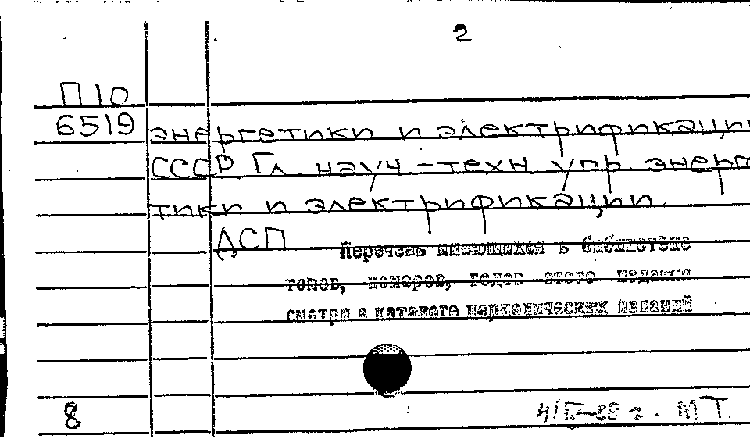 2
П10
6519 энергетики и электрификации
СССР Гл. науч-техн упр энерге
тики и электрификации.
ДСП Перечень имеющихся в библиотеке
томов, номеров, годов этого издания
смотри в каталоге периодических изданий
8 МТ